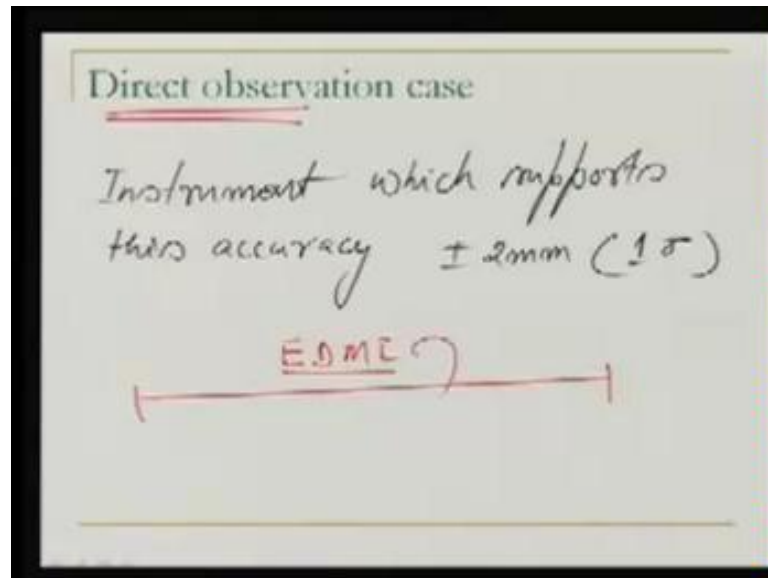 Direct observation case
Instrument which supports
this accuracy ± 2mm (1σ)
EDMI